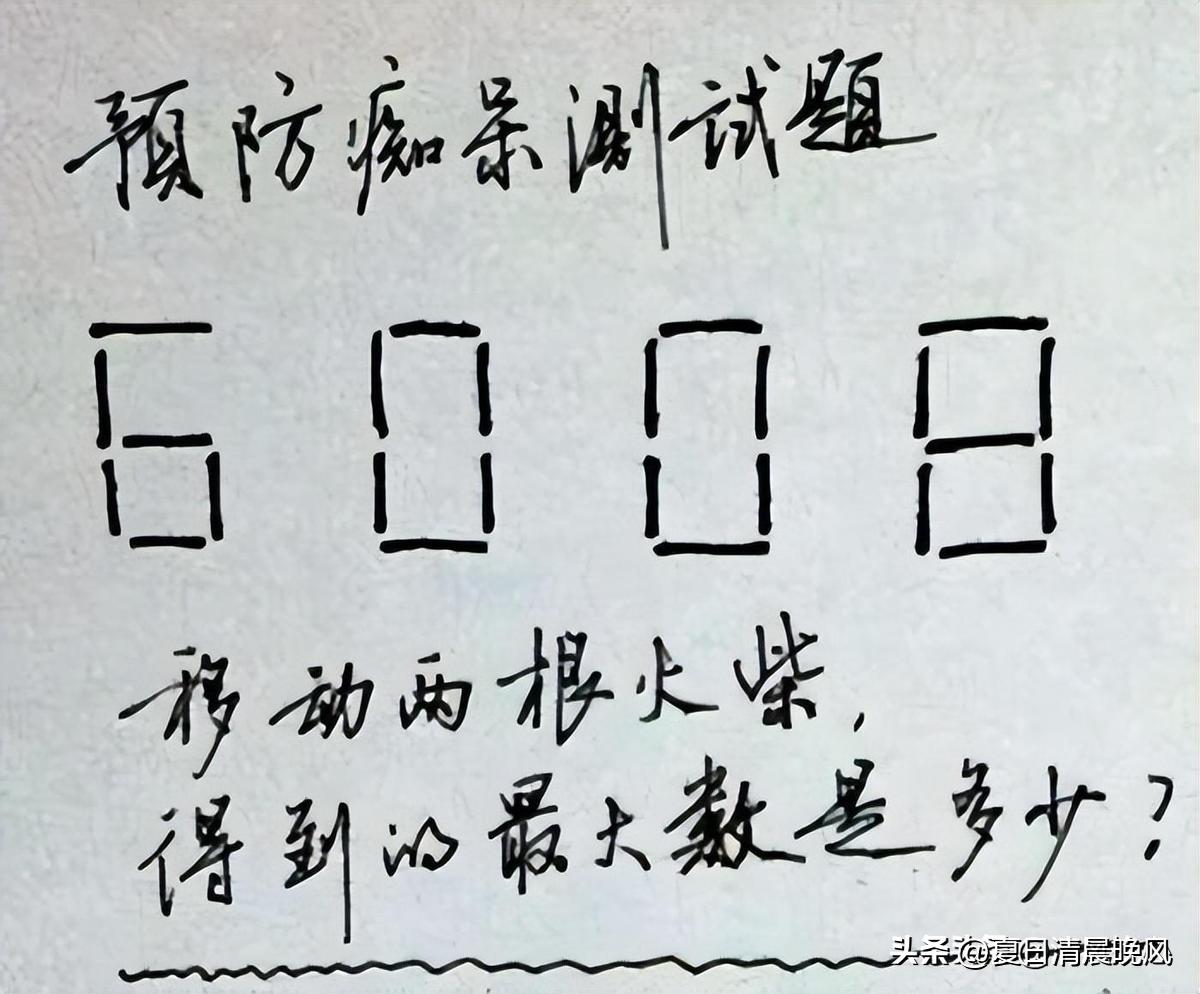 预防痴呆测试题
6008
移动两根火柴,
得到的最大数是多少?
头条@夏日清晨晚风